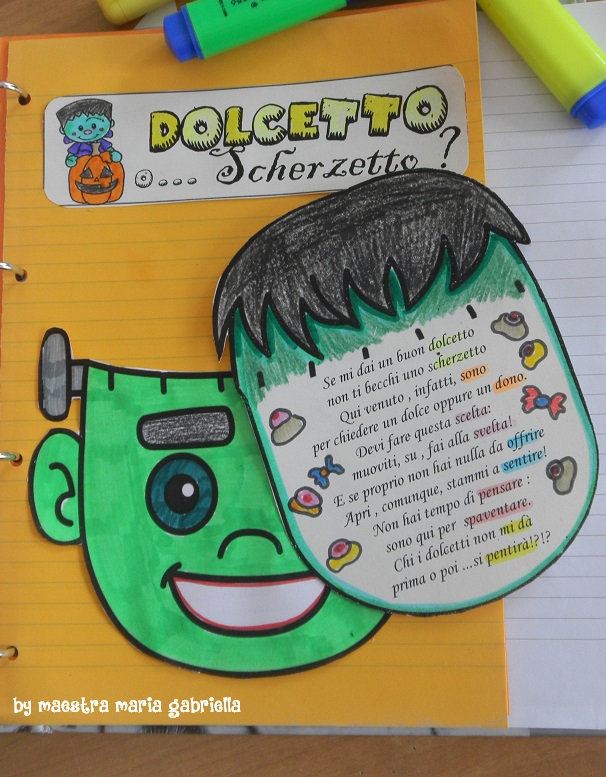 DOLCETTO
o.... Scherzetto ?
Se mi dai un buon dolcetto
non ti becchi uno scherzetto
Qui venuto , infatti, sono
per chiedere un dolce oppure un dono.
Devi fare questa scelta:
muoviti, su , fai alla svelta!
E se proprio non hai nulla da offrire
Apri , comunque, stammi a sentire!
Non hai tempo di pensare :
sono qui per spaventare.
Chi i dolcetti non mi dà
prima o poi ...si pentirà!?!?
by maestra maria gabriella